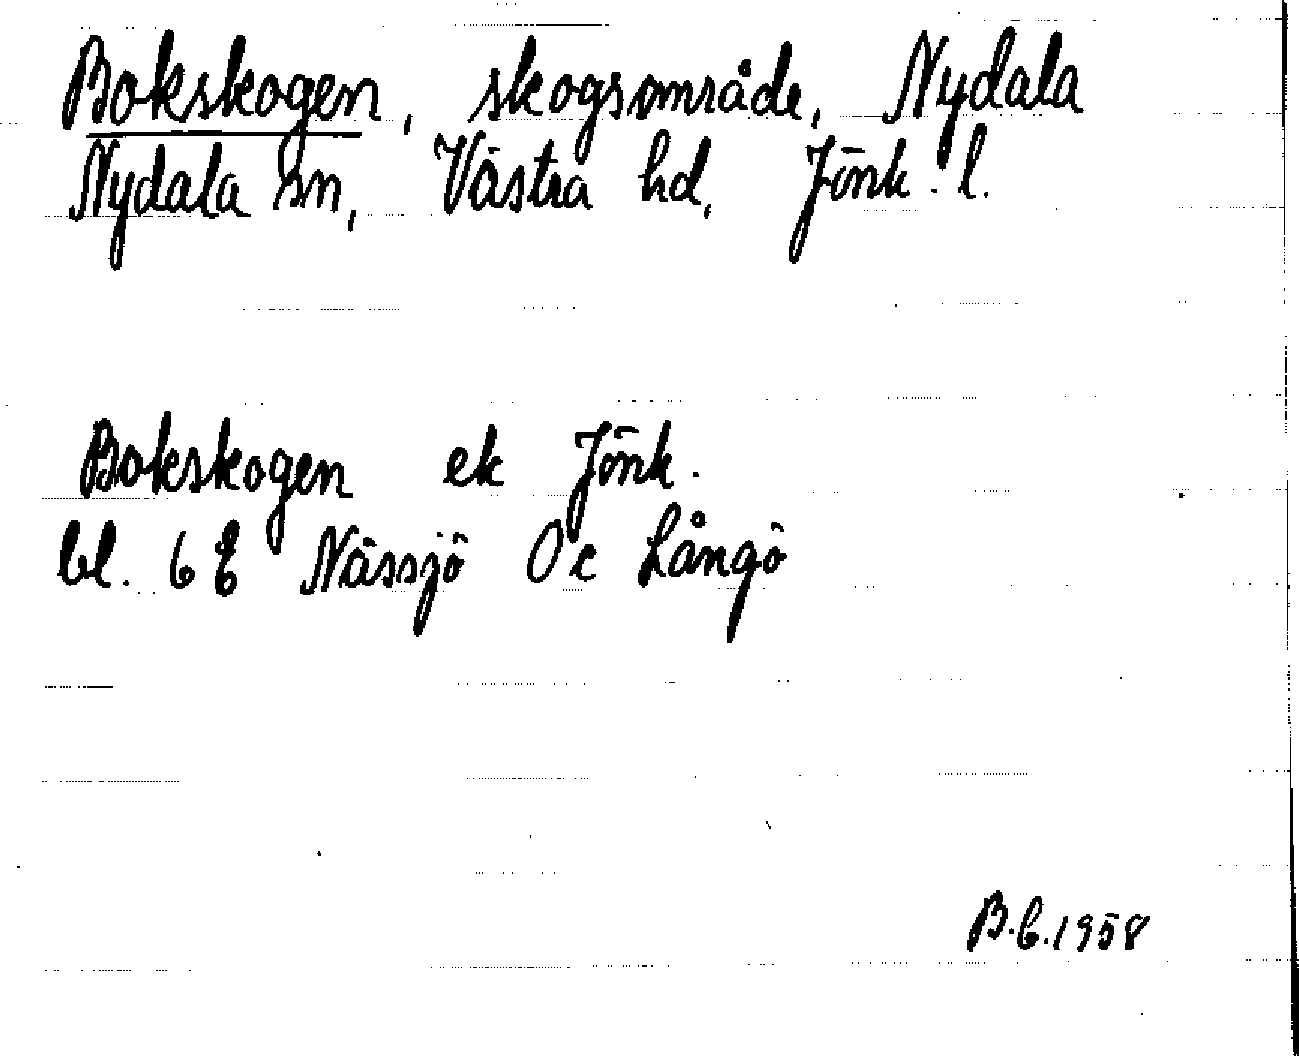 Bokskogen, skogsområde, Nydala
Nydala sn, Västra hd, Jönk. l.
Bokskogen ek Jönk.
bl. 6 E Nässjö 0 c Långö
B.C. 1958